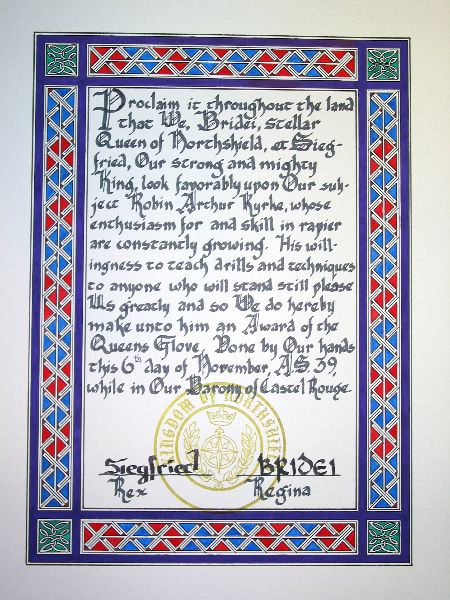 Proclaim it throughout the land
that We, Bridei, stellar
Queen of Northshield, et Sieg-
fried, Our strong and mighty
King, look favorably upon Our sub-
ject Robin Arthur Kyrke, whose
enthusiasm for and skill in rapier
are constantly growing. His will-
ingness to teach drills and techniques
to anyone who will stand still please
Us greatly and so We do hereby
make unto him an Award of the
Queens Glove. Done by Our hands
this 6th day of November, A.S. 39,
while in Our Barony of Castel Rouge.
KINGDOM OF NORTHSHIELD
Siegfried BRIDEI
Rex Regina